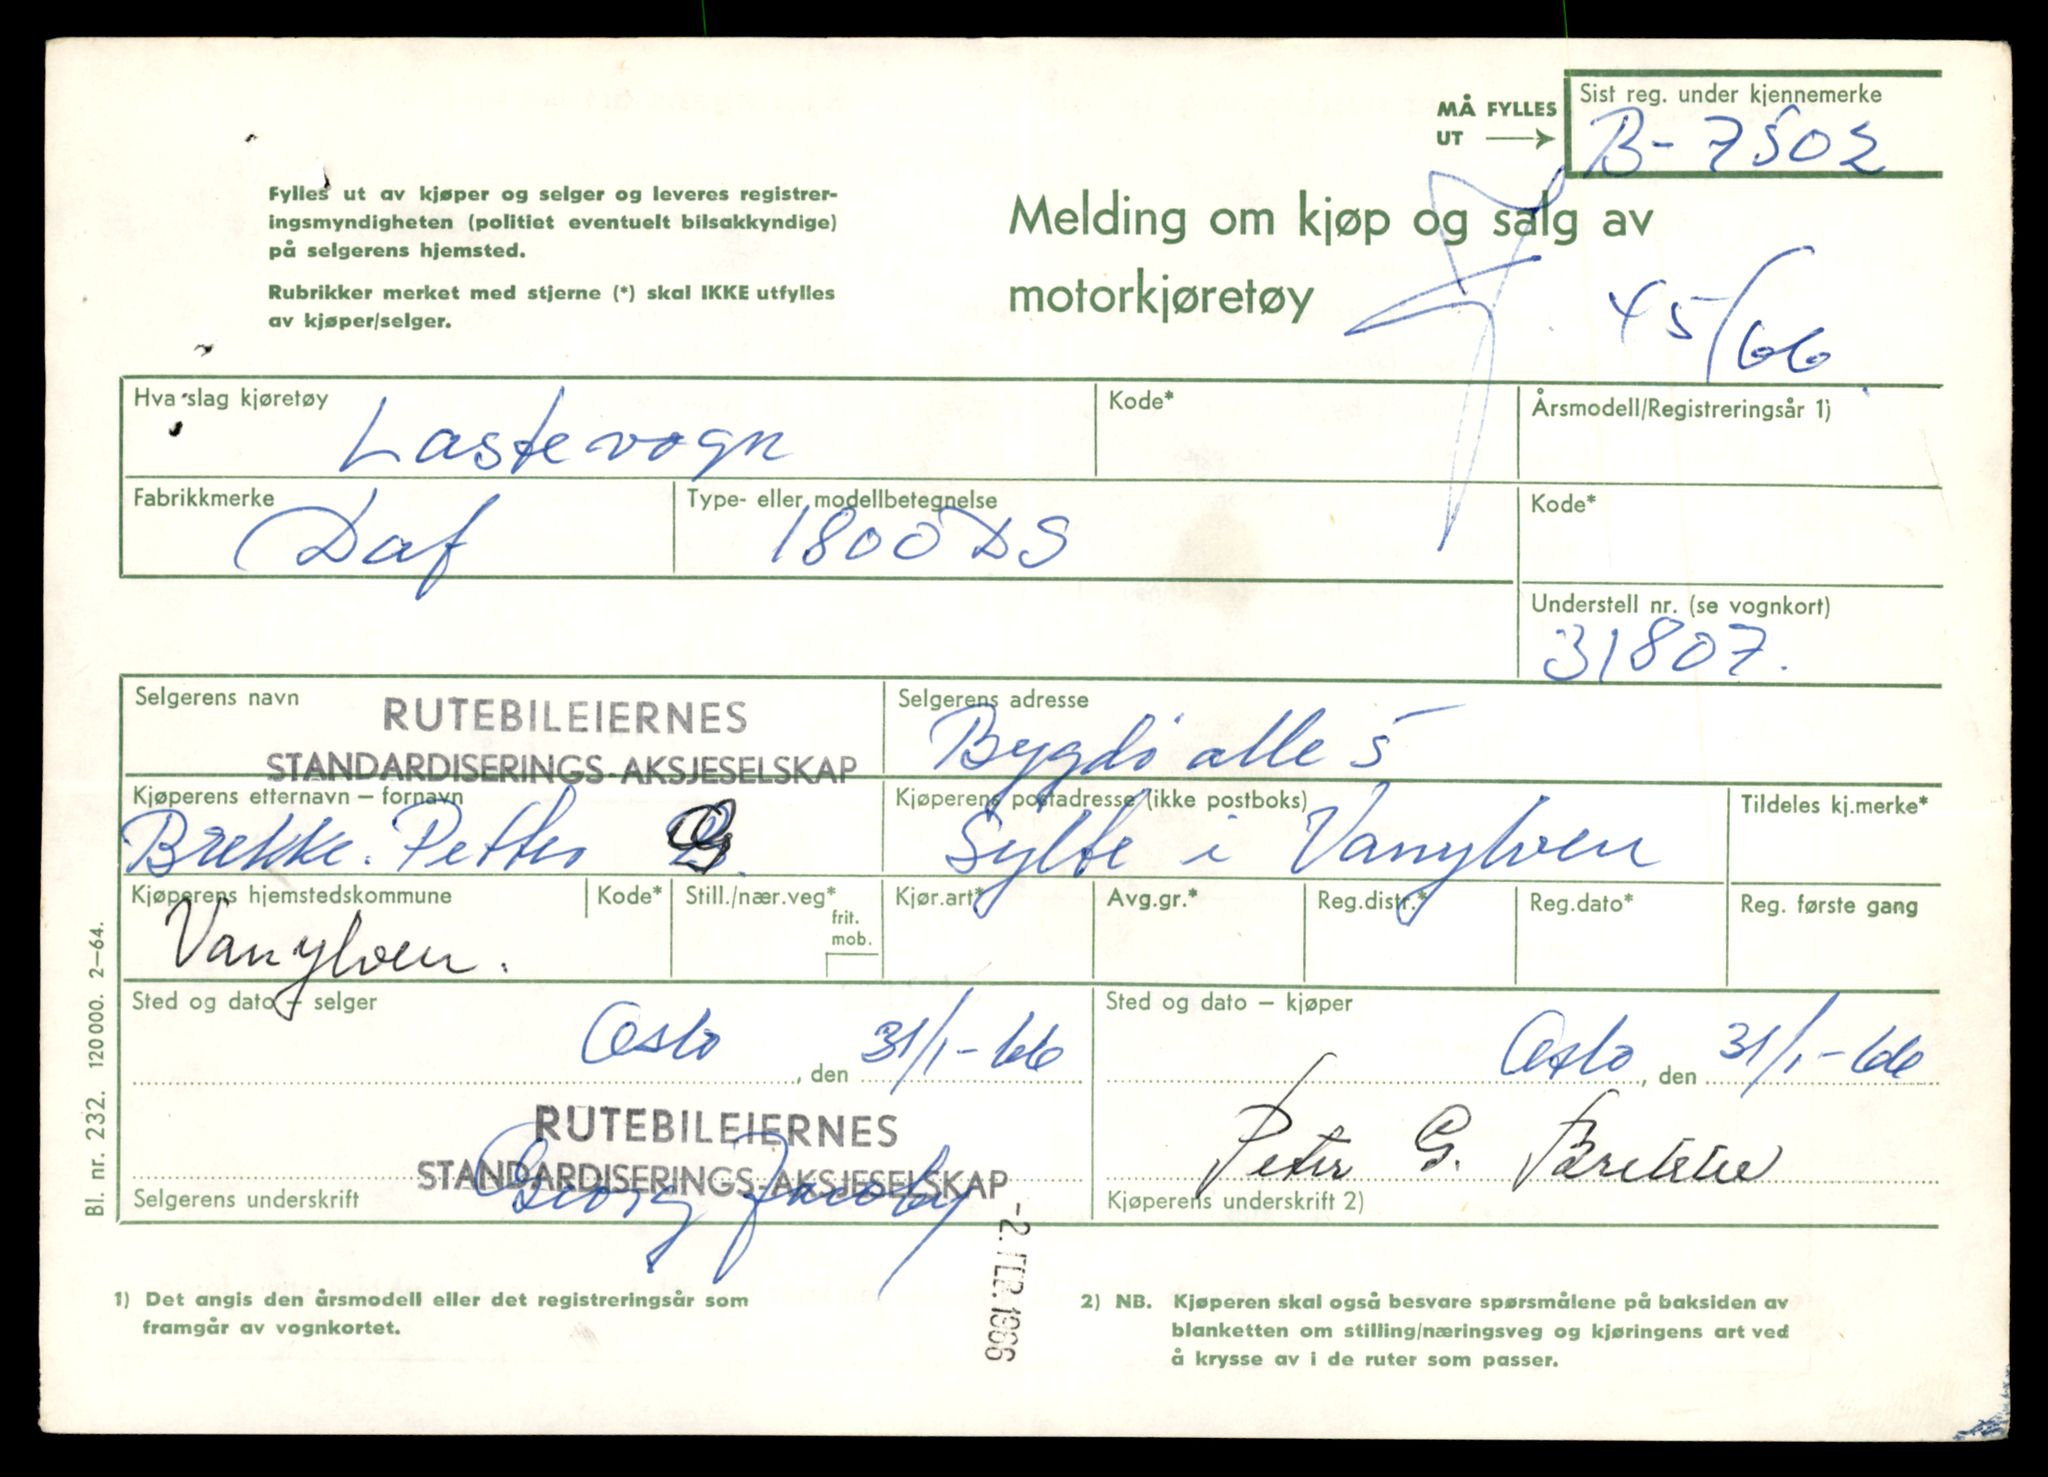 MÅ FYLLES UT
Sist reg. under kjennemerke
B-7502
Fylles ut av kjøper og selger og leveres registrer-
ingsmyndigheten (politiet eventuelt bilsakkyndige)
på selgerens hjemsted.
Rubrikker merket med stjerne (*) skal IKKE utfylles
av kjøper/selger.
Melding om kjøp og salg av
motorkjøretøy
45/66
Hva slag kjøretøy
Lastevogn
Kode*
Årsmodell/Registreringsår 1)
Fabrikkmerke
Daf
Type- eller modellbetegnelse
1800 DS
Kode*
Understell nr. (se vognkort)
31807.
Selgerens navn
RUTEBILEIERNES
STANDARDISERINGS-AKSJESELSKAP
Selgerens adresse
Bygdö alle 5
Kjøperens etternavn – fornavn
Brekke. Petter G.
Kjøperens postadresse (ikke postboks)
Sylte i Vanylven
Tildeles kj.merke*
Kjøperens hjemstedskommune
Vanylven.
Kode*
Still./nær.veg*
frit.
mob.
Kjør.art*
Avg.gr.*
Reg.distr.*
Reg.dato*
Reg. første gang
Sted og dato – selger
Oslo, den 31/1-66
Sted og dato – kjøper
Oslo, den 31/1-66
RUTEBILEIERNES
STANDARDISERINGS-AKSJESELSKAP
Georg Jacoby
Selgerens underskrift
Peter G. Brekke
Kjøperens underskrift 2)
-2. FEB. 1966
Bl. nr. 232. 120 000. 2–64.
1) Det angis den årsmodell eller det registreringsår som
framgår av vognkortet.
2) NB. Kjøperen skal også besvare spørsmålene på baksiden av
blanketten om stilling/næringsveg og kjøringens art ved
å krysse av i de ruter som passer.